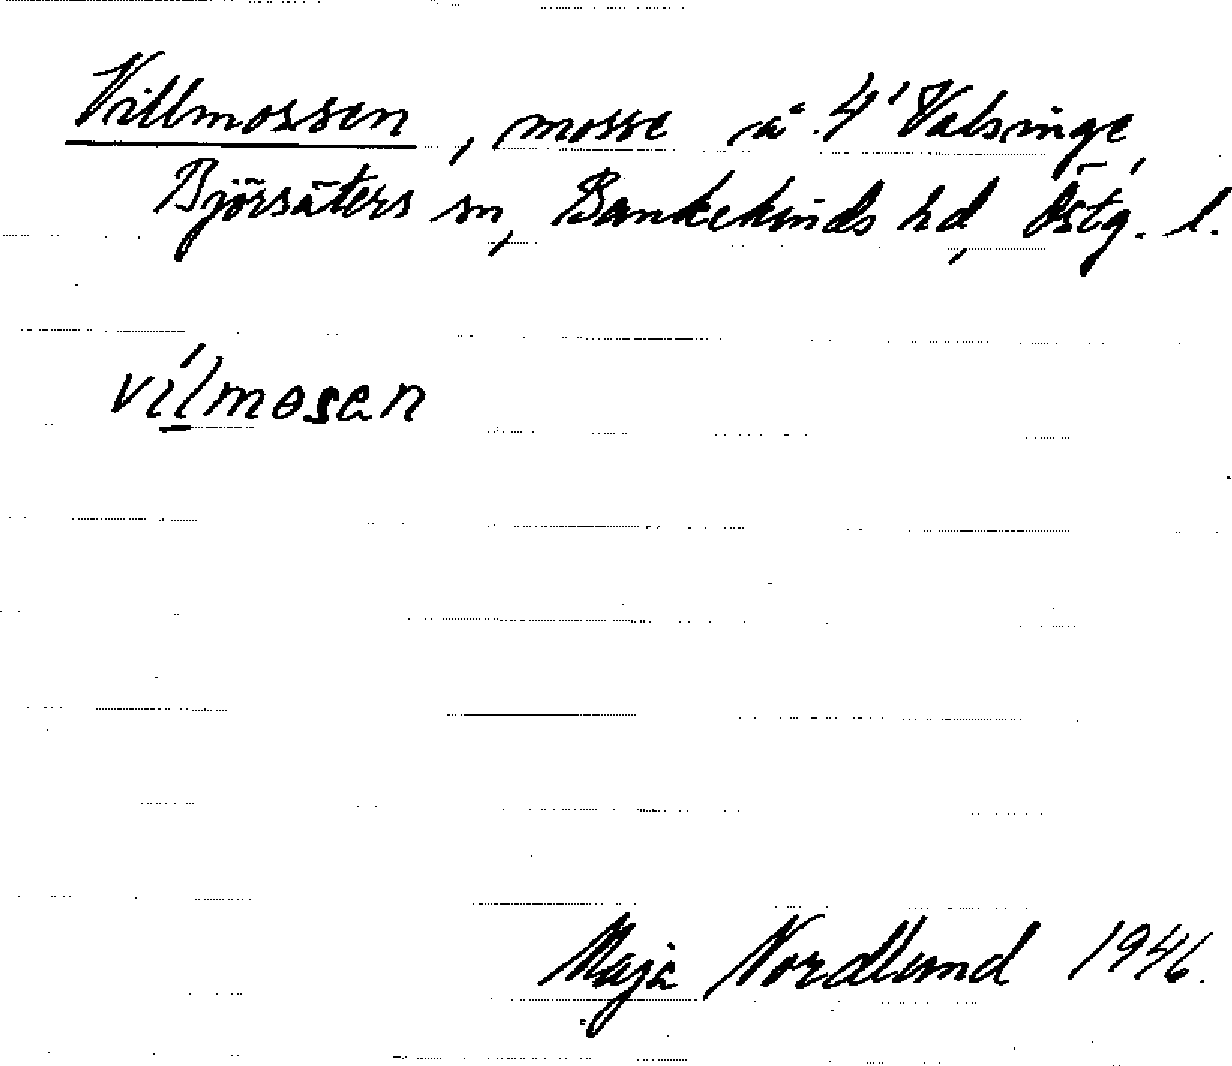 Villmossen, mosse å 4' Valsinge,
Björsäters sn, Bankekinds hd, Östg. l.
vílmosen
Maja Nordlund 1946.